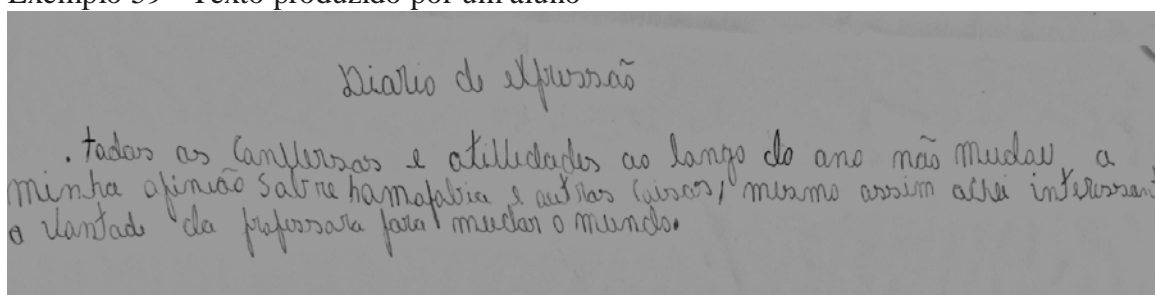 Exemplo 39 - Texto produzido por um aluno
Diario de expressão
. todas as conversas e atividades ao longo do ano não mudou a
minha opinião sobre homofobia e outras coisas, mesmo assim achei interessant
a vontade da professora para mudar o mundo.